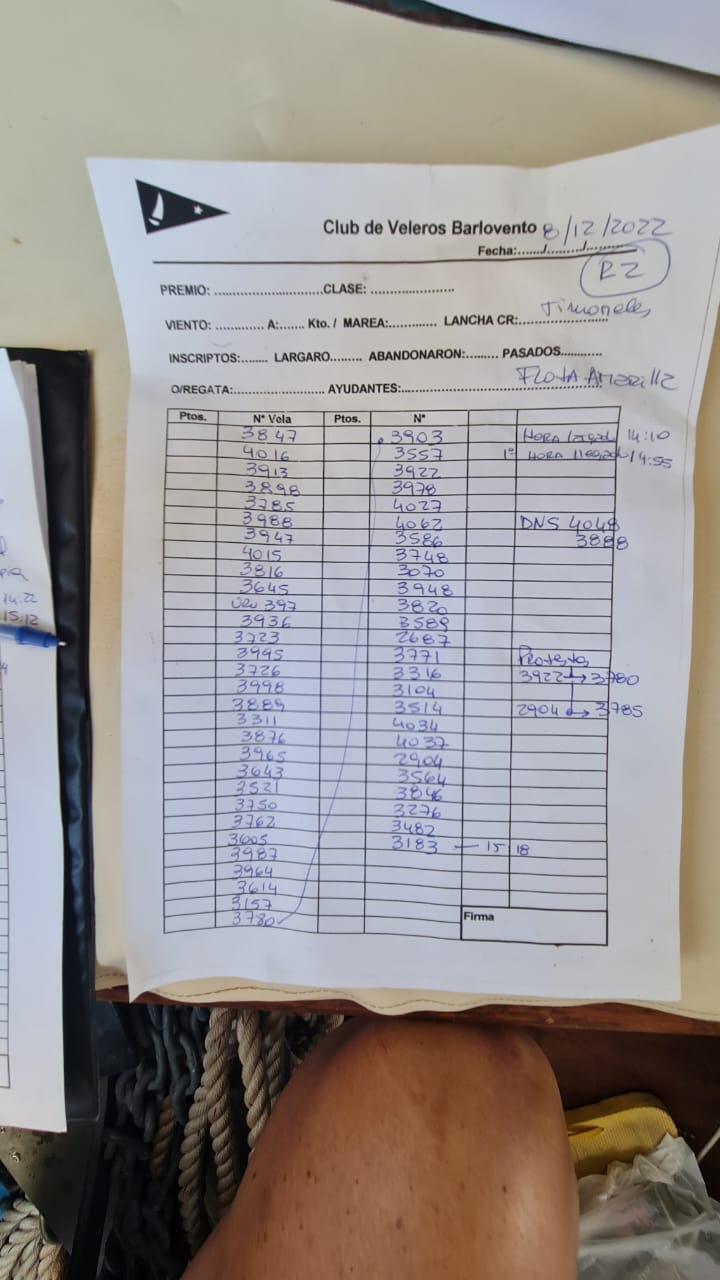 Club de Veleros Barlovento 8/12/2022
Fecha:....../........./..........
R2
PREMIO: ............................CLASE: .....................
Timoneles
VIENTO: ............. A:....... Kto. / MAREA:............. LANCHA CR:........................
INSCRIPTOS:....... LARGARO......... ABANDONARON:......... PASADOS...........
FLOTA Amarilla
O/REGATA:........................ AYUDANTES:.....................................................
Ptos. N° Vela Ptos. N°
3847 3903 HORA largada 14:10
4016 3557 1° HORA llegada 14:55
3913 3922
3898 3978
3785 4027
3988 4062 DNS 4048
3947 3586 3888
4015 3748
3816 3070
3645 3948
URU 397 3820
3936 3589
3723 2687
3995 3771 Protestas
3726 3316 3922 → 3780
3998 3104
3889 3514 2904 → 3785
3311 4034
3876 4037
3965 2904
3643 3564
3521 3846
3750 3276
3762 3482
3605 3183 — 15 18
3987
3964
3614
3157
3780
Firma
14:22
15:12